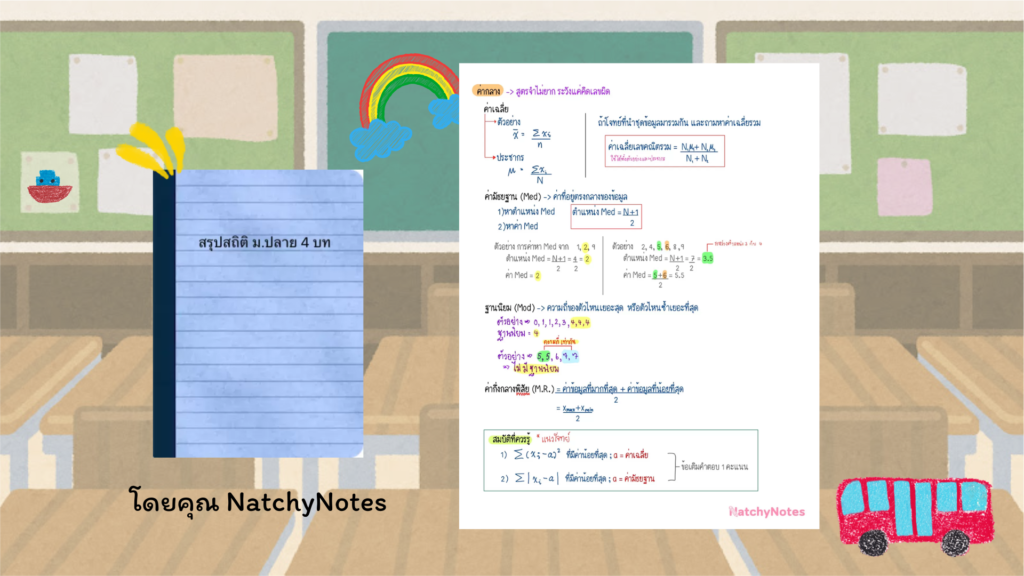 สรุปสถิติ ม.ปลาย 4 บท
โดยคุณ NatchyNotes
ค่ากลาง -> สูตรจำไม่ยาก ระวังแค่คิดเลขผิด
ค่าเฉลี่ย
ตัวอย่าง
x̄ = Σxᵢ / n
ประชากร
μ = Σxᵢ / N
ถ้าโจทย์ที่นำชุดข้อมูลมารวมกัน และถามหาค่าเฉลี่ยรวม
ค่าเฉลี่ยเลขคณิตรวม = N₁μ₁ + N₂μ₂ / N₁ + N₂
ค่ามัธยฐาน (Med) -> ค่าที่อยู่ตรงกลางของข้อมูล
1)หาตำแหน่ง Med
ตำแหน่ง Med = N+1 / 2
2)หาค่า Med
ตัวอย่าง การค่าหา Med จาก 1, 2, 4
ตำแหน่ง Med = N+1 / 2 = 4 / 2 = 2
ค่า Med = 2
ตัวอย่าง 2, 4, 5, 6, 8, 9
ตำแหน่ง Med = N+1 / 2 = 7 / 2 = 3.5
ค่า Med = 5+6 / 2 = 5.5
ฐานนิยม (Mod) -> ความถี่ของตัวไหนเยอะสุด หรือตัวไหนซ้ำเยอะที่สุด
ตัวอย่าง => 0, 1, 1, 2, 3, 4, 4, 4
ฐานนิยม = 4
ความถี่เท่ากัน
ตัวอย่าง => 5, 5, 6, 7, 7
=> ไม่มีฐานนิยม
ค่ากึ่งกลางพิสัย (M.R.) = ค่าข้อมูลที่มากที่สุด + ค่าข้อมูลที่น้อยที่สุด / 2
= xmax + xmin / 2
สมบัติที่ควรรู้ * แนวโจทย์
1) Σ(xᵢ-a)² ที่มีค่าน้อยที่สุด ; a = ค่าเฉลี่ย
2) Σ|xᵢ-a| ที่มีค่าน้อยที่สุด ; a = ค่ามัธยฐาน
ข้อเติมคำตอบ 1 คะแนน
NatchyNotes